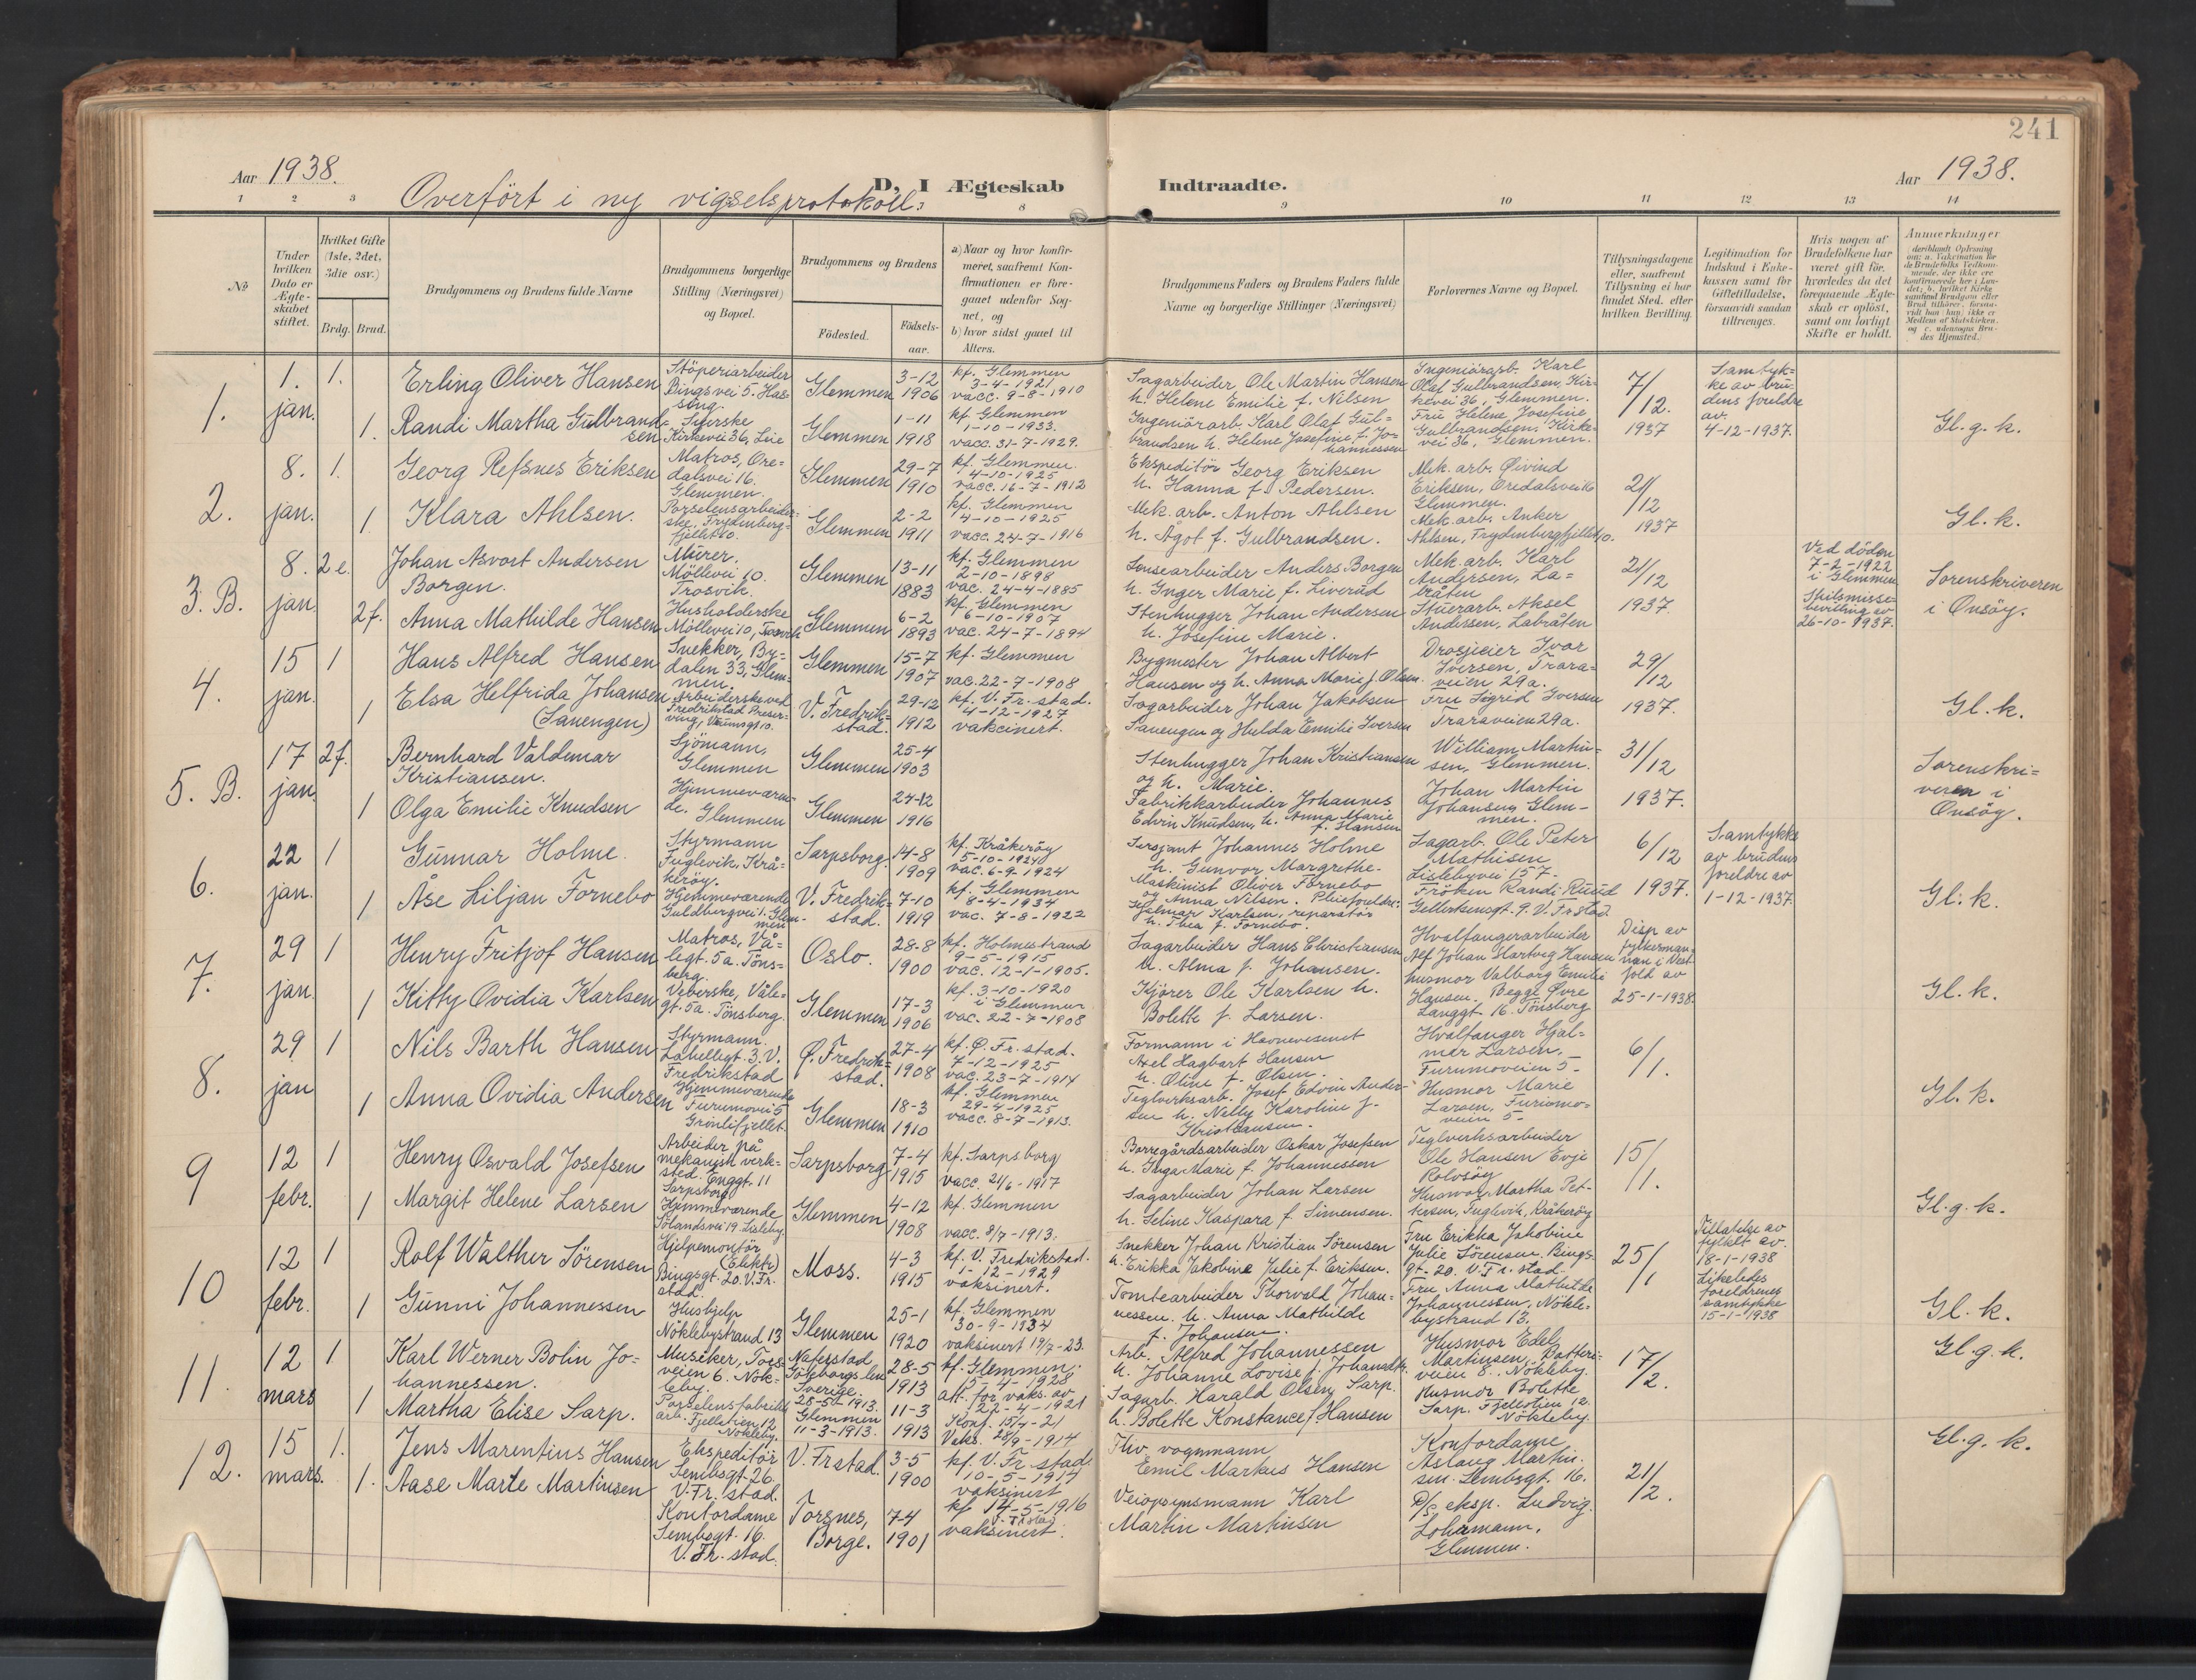 241
Aar 1938.
D, I Ægteskab Indtraadte.
Aar 1938.
Overfört i ny vigselsprotokoll:
1 2 3 8 9 10 11 12 13 14
No
Under hvilken Dato er Ægteskabet stiftet.
Hvilket Gifte (1ste, 2det, 3die osv.)
Brdg. Brud.
Brudgommens og Brudens fulde Navne
Brudgommens borgerlige Stilling (Næringsvei) og Bopæl.
Brudgommens og Brudens
Födested.
Födsels-aar.
a) Naar og hvor konfir-
meret, saafremt Kon-
firmationen er fore-
gaaet udenfor Sog-
net, og
b) hvor sidst gaaet til
Alters.
Brudgommens Faders og Brudens Faders fulde
Navne og borgerlige Stillinger (Næringsvei)
Forlovernes Navne og Bopæl.
Tillysningsdagene
eller, saafremt
Tillysning ei har
fundet Sted, efter
hvilken Bevilling.
Legitimation for
Indskud i Enke-
kassen samt for
Giftetilladelse,
forsaavidt saadan
tiltrænges.
Hvis nogen af
Brudefolkene har
været gift før,
hvorledes da det
foregaaende Ægte-
skab er opløst,
samt om lovligt
Skifte er holdt.
Anmerkninger
1. 1. jan. 1.
Erling Oliver Hansen
Stöperiarbeider
Bingsvei 5. Has-
sing.
Glemmen
3-12
1906
kf. Glemmen
3-4-1921
vacc. 9-8-1910
Sagarbeider Ole Martin Hansen
h. Helene Emilie f. Nilsen
Ingeniörarb. Karl
Olaf Gulbrandsen, Kir-
kevei 36, Glemmen.
7/12.
1937
Samtyk-
ke av bru-
dens foreldre
av
4-12-1937.
Gl. g. k.
1. Randi Martha Gulbrand-
sen
Kirkevei 36, Leie
Glemmen
1-11
1918
kf Glemmen
1-10-1933.
vacc. 31-7-1929.
Ingeniörarb. Karl Olaf Gul-
brandsen h. Helene Josefine f. Jo-
hannessen
Fru Helene Josefine
Gulbrandsen, Kirke-
vei 36, Glemmen.
2. 8. jan. 1.
Georg Refsnes Eriksen
Matros, Ore-
dalsvei 16.
Glemmen.
Glemmen
29-7
1910
kf. Glemmen.
4-10-1925
vacc. 16-7-1912
Ekspeditör Georg Eriksen
h. Hanna f. Pedersen.
Mek. arb. Øivind
Eriksen, Oredalsvei 16
Glemmen.
21/12
1937
Gl. k.
1. Klara Ahlsen.
Porselensarbeider-
ske, Frydenberg-
fjellet 10.
Glemmen
2-2
1911
kf. Glemmen
4-10-1925
vacc. 24-7-1916
Mek. arb. Anton Ahlsen
h. Ågot f. Gulbrandsen.
Mek. arb. Anker
Ahlsen, Frydenbergfjellet 10.
3. B. 8. jan. 2 e.
Johan Asvort Andersen
Borgen.
Murer.
Möllevei 10.
Trosvik.
Glemmen
13-11
1883
kf. Glemmen
2-10-1898
vac. 24-4-1885
Lensearbeider Anders Borgen
h. Inger Marie f. Liverud
Mek. arb. Karl
Andersen, La-
bråten
21/12
1937.
Ved döden
7-2-1922
i Glemmen
Skilsmisse-
bevilling av
26-10-1937.
Sorenskriveren
i Onsöy.
2 f. Anna Mathilde Hansen
Husholderske
Möllevei 10, Trosvik
Glemmen
6-2
1893
kf. Glemmen
6-10-1907
vac. 24-7-1894
Stenhugger Johan Andersen
h. Josefine Marie.
Stuerarb. Aksel
Andersen, Labråten
4. 15 jan. 1
Hans Alfred Hansen
Snekker, By-
dalen 33, Glem-
men.
Glemmen
15-7
1907
kf. Glemmen
vac. 22-7-1908
Bygmester Johan Albert
Hansen og h. Anna Marie f. Olsen.
Drosjeeier Ivar
Iversen, Trara-
veien 29a.
29/12
1937.
Gl. k.
1 Elsa Helfrida Johansen
(Sauengen)
Arbeiderske ved
Fredrikstad Preser-
ving,
V. Fredrik-
stad.
29-12
1912
kf. V. Fr. stad.
4-12-1927
vakcinert.
Sagarbeider Johan Jakobsen
Sauengen og Hulda Emilie Iversen
Fru Sigrid Iversen
Traraveien 29a.
5. B. 17 jan. 2 f.
Bernhard Valdemar
Kristiansen.
Sjömann,
Glemmen
Glemmen
25-4
1903
Stenhugger Johan Kristiansen
og h. Marie.
William Martin-
sen, Glemmen.
31/12
1937.
Sorenskri-
veren i
Onsöy.
1 Olga Emilie Knudsen
Hjemmeværen-
de. Glemmen
Glemmen
24-12
1916
Fabrikkarbeider Johannes
Edvin Knudsen, h. Anna Marie
f. Hansen
Johan Martin
Johansen, Glem-
men.
6. 22 jan. 1
Gunnar Holme.
Styrmann
Fuglevik, Krå-
keröy.
Sarpsborg.
14-8
1909
kf. Kråkeröy
5-10-1924
vac. 6-9-1924
Sersjant Johannes Holme
h. Gunvor Margrethe.
Sagarb. Ole Peter
Mathisen
Lislebyvei 157.
6/12
1937.
Samtykke
av brudens
foreldre av
1-12-1937
Gl. k.
1 Åse Liljan Fornebo
Hjemmeværende
Guldbergvei 1. Glem-
men
V. Fredrik-
stad.
7-10
1919
kf. Glemmen
8-4-1934
vac. 7-8-1922
Maskinist Oliver Fornebo
og Anna Nilsen. Pleieforeldre:
Hjalmar Karlsen, reparatör
h. Thea f. Fornebo.
Fröken Randi Ruud
9. V. Frstad
7. 29 jan. 1
Henry Fritjof Hansen
Matros, Vå-
legt. 5a. Töns-
berg.
Oslo.
28-8
1900
kf. Holmestrand
9-5-1915
vac. 12-1-1905.
Sagarbeider Hans Christiansen
h. Alma f. Johansen.
Hvalfangerarbeider
Alf Johan Hartvig Hansen
Disp av
fylkesman-
nen i Vest-
fold av
25-1-1938.
Gl. k.
1 Kitty Ovidia Karlsen
Veverske, Våle-
gt. 5a. Tönsberg.
Glemmen
17-3
1906
kf. 3-10-1920
i Glemmen
vac. 22-7-1908
Kjörer Ole Karlsen h.
Bolette f. Larsen.
husmor Valborg Emilie
Hansen. Begge Øvre
Langgt. 16. Tönsberg
8. 29 jan 1
Nils Barth Hansen
Styrmann.
Labellegt. 3. V.
Fredrikstad
Ø. Fredrik-
stad.
27-4
1908
kf. Ø. Fr. stad.
7-12-1925
vac. 23-7-1914
Formann i Havnevesenet
Axel Hagbart Hansen
h. Oline f. Olsen.
Hvalfanger Hjal-
mar Larsen,
Furumoveien 5-
6/1.
Gl. k.
1 Anna Ovidia Andersen
Hjemmeværende
Furumovei 5
Grönlifjellet
Glemmen
18-3
1910
kf. Glemmen
29-4-1925
vacc. 8-7-1913.
Teglverksarb. Josef Edvin Ander-
sen h. Nelly Karoline f.
Kristiansen.
Husmor Marie
Larsen, Furumo-
veien 5-
9 12 febr. 1
Henry Osvald Josefsen
Arbeider på
mekanisk verk-
sted. Enggt. 11
Sarpsborg
Sarpsborg
7-4
1915
kf. Sarpsborg
vacc. 2/6-1917
Borregårdsarbeider Oskar Josefsen
h. Inga Marie f. Johannessen
Teglverksarbeider
Ole Hansen Evje
Rolvsöy
15/1.
Gl. g. k.
1 Margit Helene Larsen
Hjemmeværende
Sölandsvei 19. Lisleby
Glemmen
4-12
1908
kf. Glemmen
vacc. 8/7-1913.
Sagarbeider Johan Larsen
h. Seline Kaspara f. Simensen.
Husmor Martha Pet-
tersen, Fuglevik, Kråkeröy
10 12 febr. 1
Rolf Walther Sörensen
Hjelpemontör
(Elektr.)
Bingsgt. 20. V. Fr.
stad.
Moss.
4-3
1915
kf. V. Fredrikstad.
1-12-1929
vaksinert.
Snekker Johan Kristian Sörensen
h. Erikka Jakobine Julie f. Eriksen.
Fru Erikka Jakobine
Julie Sörensen. Bings-
gt. 20. V. Fr. stad.
25/1
Tillatelse av
fylket av
18-1-1938
Likeledes
foreldrenes
samtykke
15-1-1938
Gl. k.
1 Gunni Johannessen
Hushjelp
Nöklebystrand 13
Glemmen
25-1
1920
kf. Glemmen
30-9-1934
vaksinert 19/7-23.
Tomtearbeider Thorvald Johan-
nessen. h. Anna Mathilde
f. Johansen.
Fru Anna Mathilde
Johannessen, Nökle-
bystrand 13.
11. 12 mars 1
Karl Werner Bolin Jo-
hannessen.
Musiker, Tors-
veien 6. Nök-
leby.
Naferstad
Göteborgs len
Sverige.
28-5-1913.
28-5
1913
kf. Glemmen.
15-4-1928
att. for vaks. av
22-4-1921
Arb. Alfred Johannessen
h. Johanne Lovise f. Johansdtr.
Husmor Edel
Martinsen, Batteri-
veien 8. Nökleby.
17/2.
Gl. g. k.
1 Martha Elise Sarp.
Porselensfabrikk
arb. Fjellstien 12
Nökleby.
Glemmen
11-3-1913.
11-3
1913
Konf. 15/4-21
Vaks. 28/9-1914
Sagarb. Harald Olsen Sarp.
h. Bolette Konstance f. Hansen
Husmor Bolette
Sarp. Fjellstien 12.
Nökleby.
12. 15 mars. 1.
Jens Marentius Hansen
Ekspeditör
Sembsgt. 26.
V. Fr. stad.
V. Frstad.
3-5
1900
kf. V. Fr. stad.
10-5-1914
vaksinert
Fhv. vognmann
Emil Markus Hansen
Kontordame
Aslaug Martin-
sen. Sembsgt. 16.
21/2.
Gl. g. k.
1. Aase Marte Martinsen
Kontordame
Sembsgt. 16.
V. Fr. stad.
Torsnes,
Borge.
7-4
1901
kf 14-5-1916
vaksinert.
Veiopsynsmann Karl
Martin Martinsen
D/S eksp. Ludvig
Lohrmann.
Glemmen.